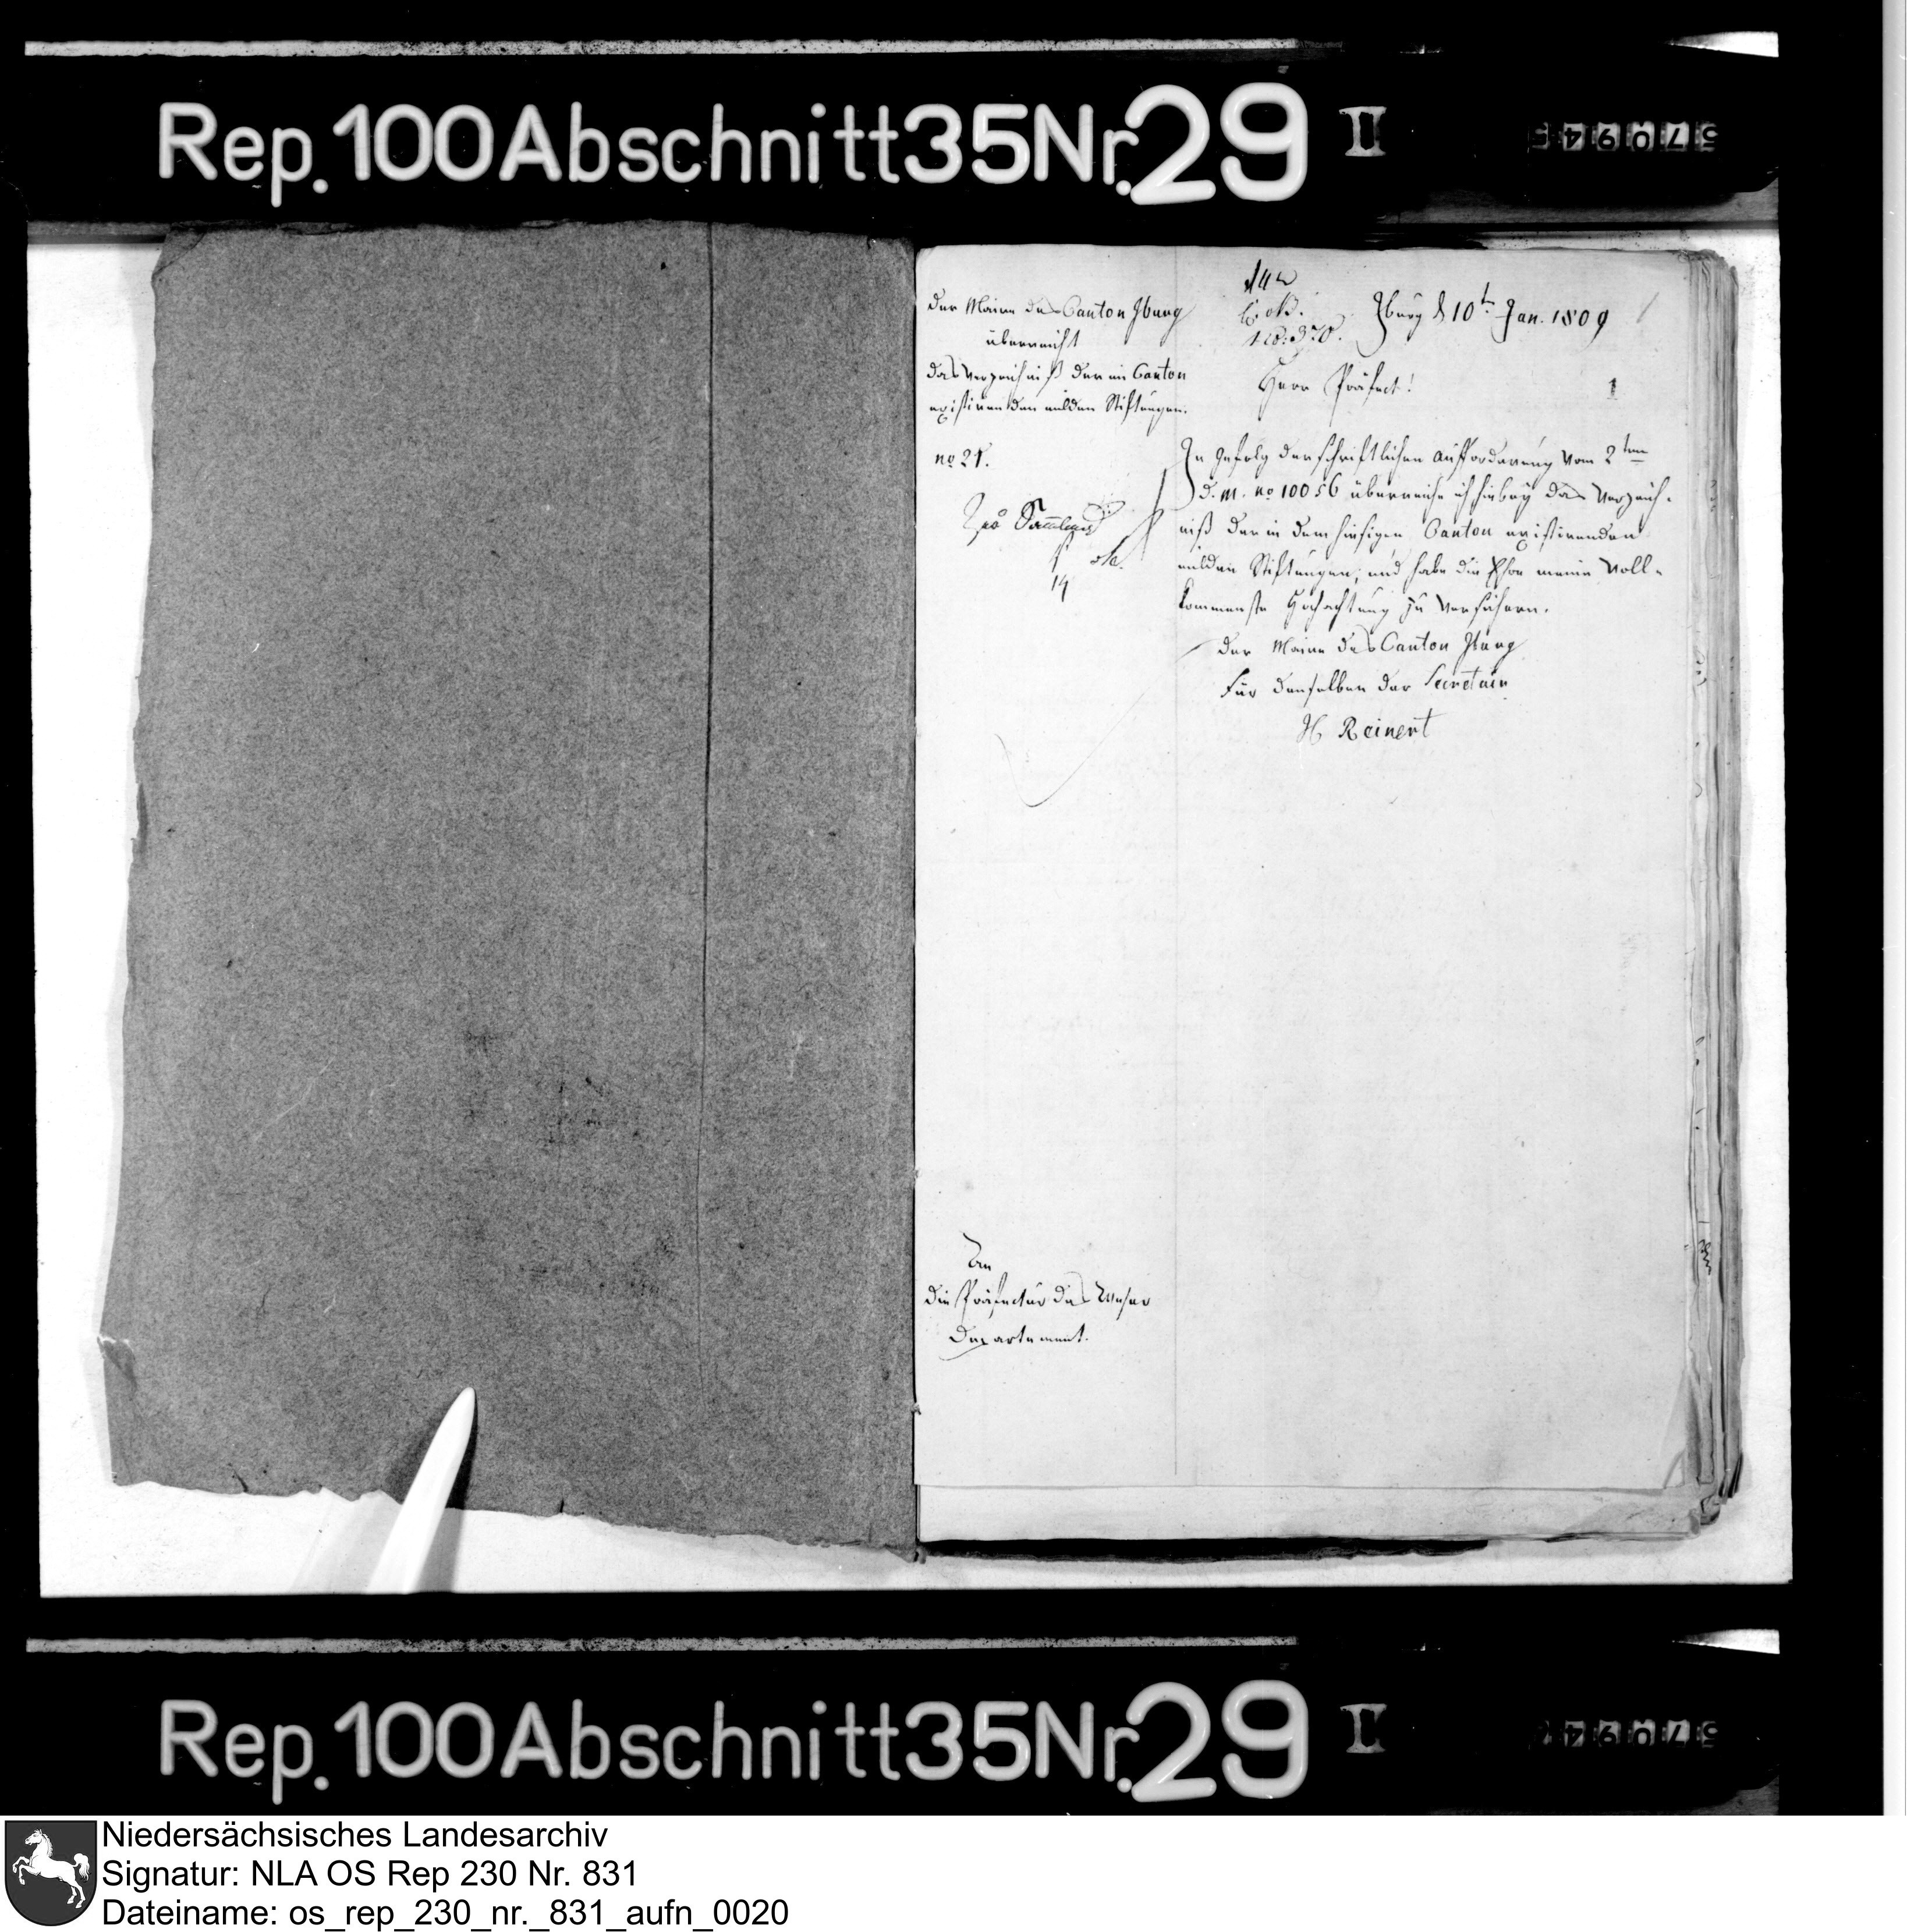 Rep. 100 Abschnitt 35 Nr. 29 II
57094
Der Maire des Canton Iburg
überreicht
das Verzeichniß der im Canton
existirenden milden Stiftungen.
no 21.
14
no: 370.
Iburg d 10t Jan. 1809
1
Herr Präfect!
In Gefolg der schriftlichen Aufforderung vom 2ten
d. M. no 10056 überreiche ich hiebey das Verzeich-
niß der in dem hiesigen Canton existirenden
milden Stiftungen, und habe die Ehre meine voll-
kommenste Hochachtung zu versichern.
Der Maire des Canton Iburg
Für denselben der Secretair
H Reinert
An
die Präfectur des Weser
Departement.
Rep. 100 Abschnitt 35 Nr. 29 I
57094
Niedersächsisches Landesarchiv
Signatur: NLA OS Rep 230 Nr. 831
Dateiname: os_rep_230_nr._831_aufn_0020